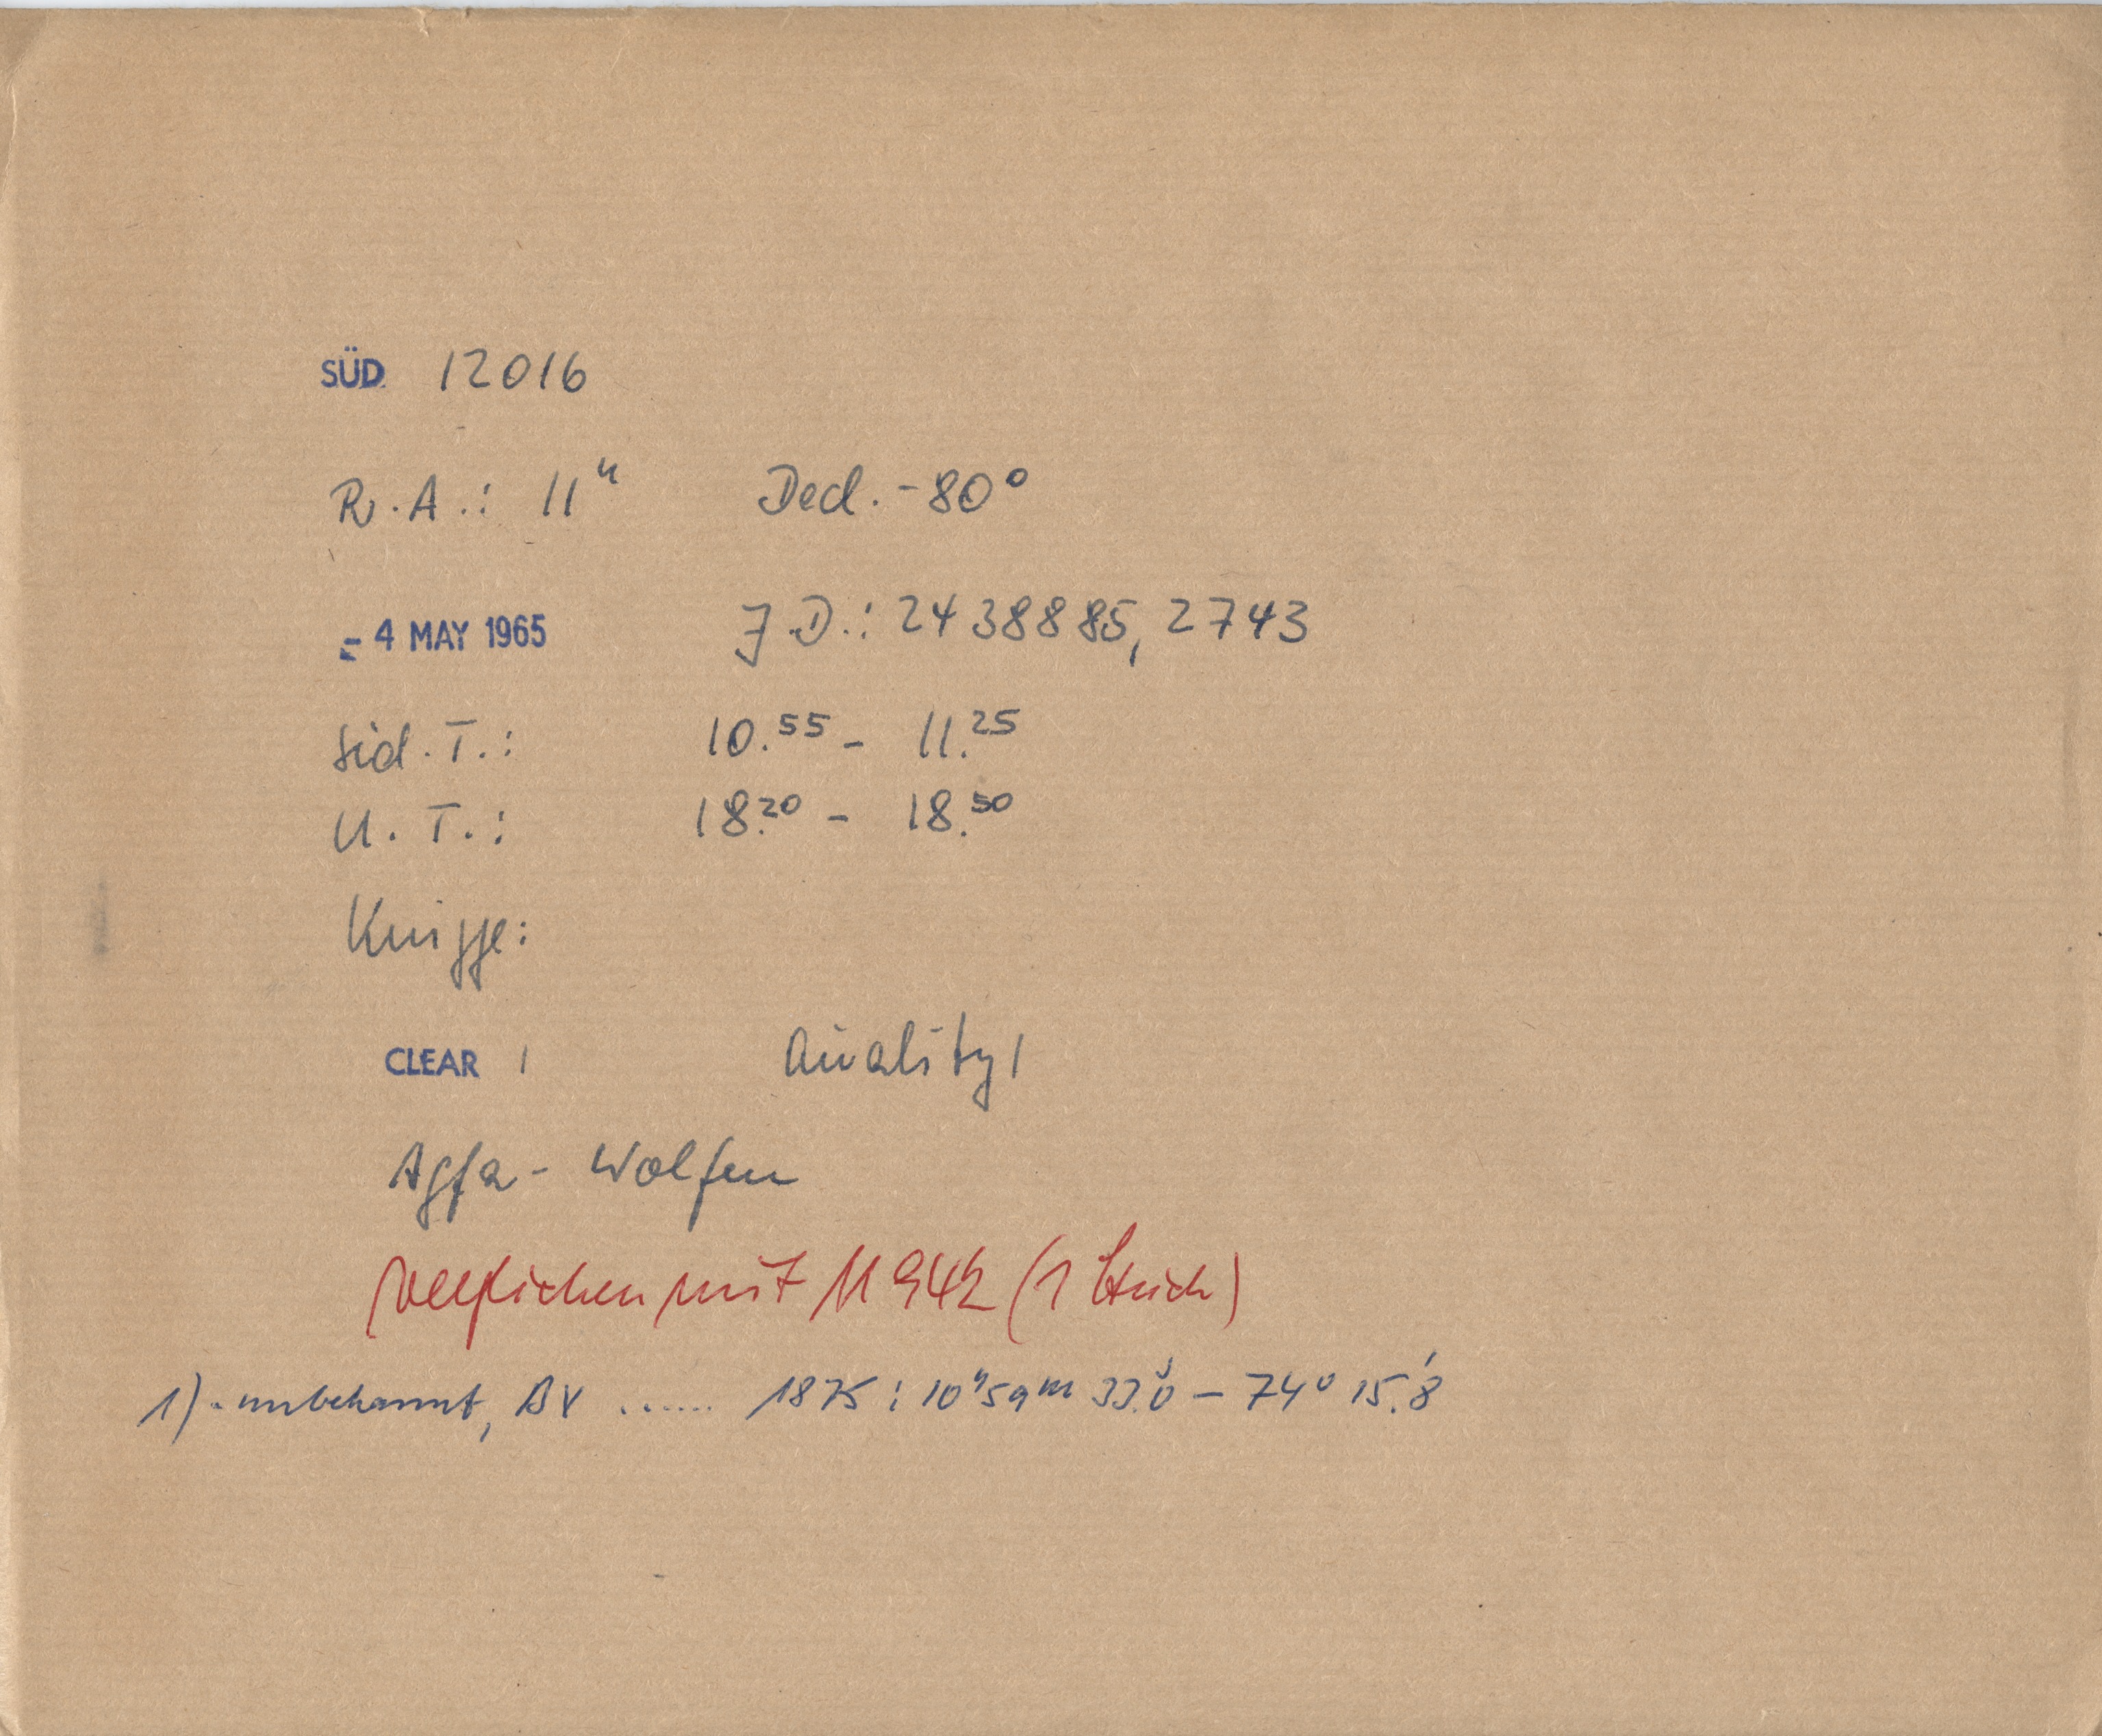 SÜD 12016
R.A.: 11ʰ Decl. -80°
- 4 MAY 1965 J.D.: 2438885,2743
Sid.T.: 10.⁵⁵ - 11.²⁵
U.T.: 18.²⁰ - 18.⁵⁰
Knigge:
CLEAR 1 Quality 1
Agfa- Wolfen
Verglichen mit 11942 (1 Strich)
1) · unbekannt, BV ...... 1875: 10ʰ59ᵐ 33ˢ.0 – 74° 15.'8